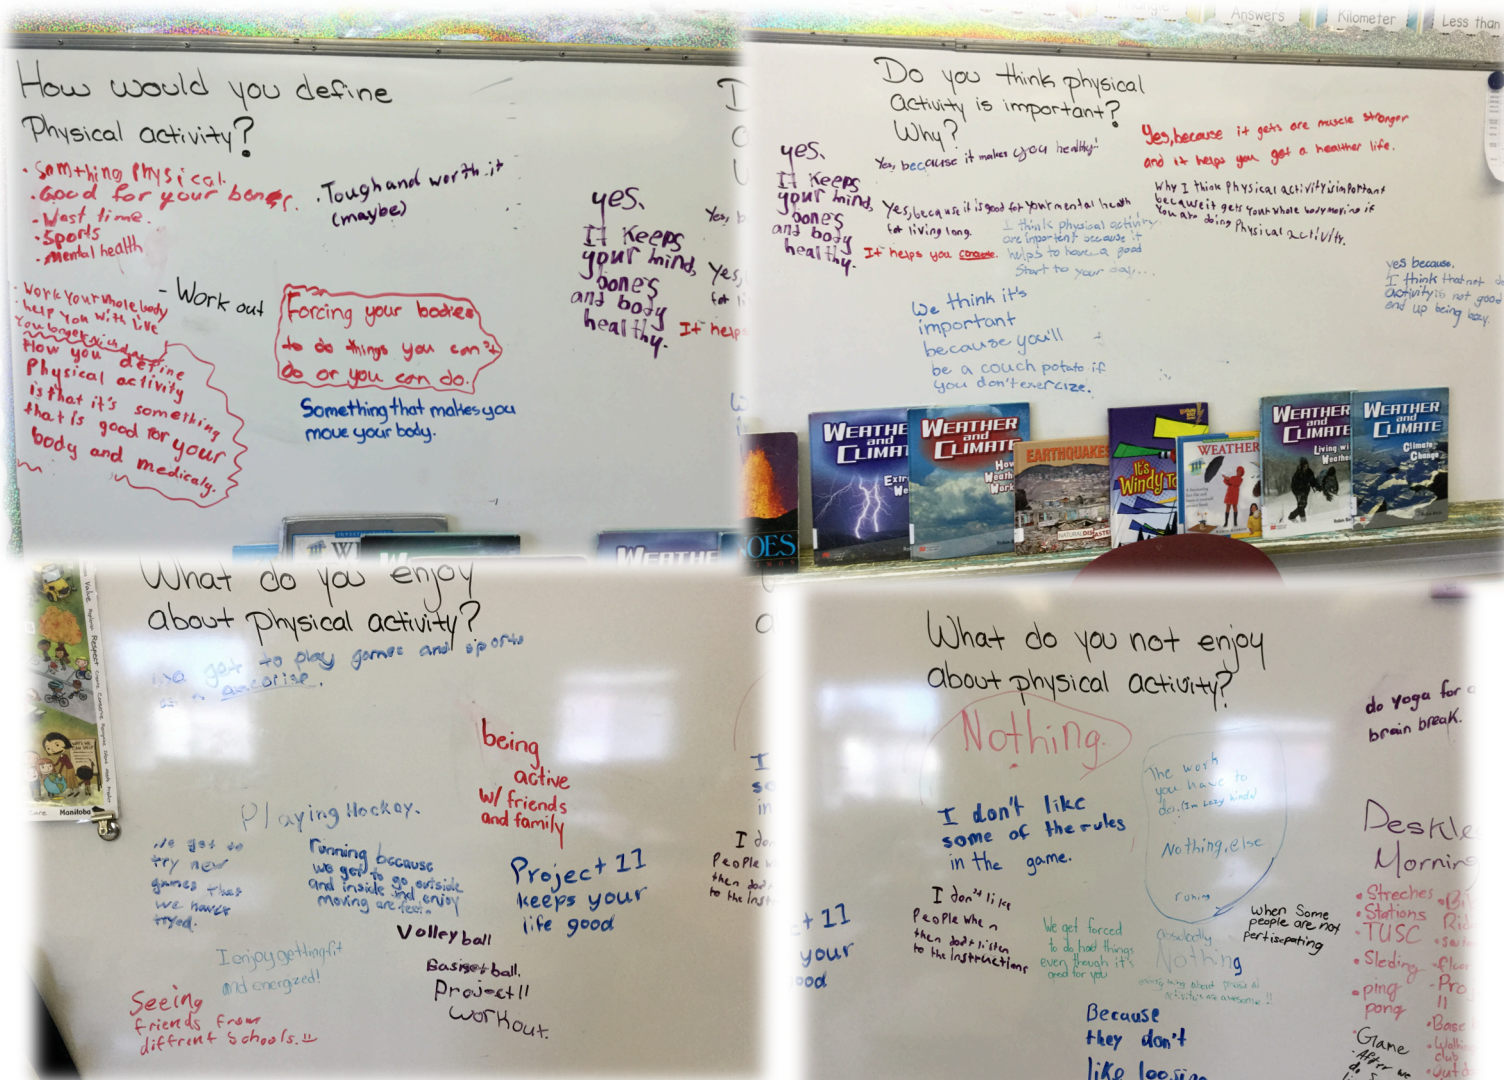 How would you define
Physical activity?
• Somthing Physical.
• Good for your bones.
• Wast time.
• Sports
• mental health
• Tough and worth it
(maybe)
- Work out
• Work your whole body
• help you with live
You longer
How you define
Physical activity
is that it's something
that is good for your
body and medicaly.
Forcing your bodies
to do things you can't
do or you can do.
Something that makes you
move your body.
yes.
It Keeps
your mind,
bones
and body
healthy.
It helps
Answers
Kilometer
Less than
Do you think physical
activity is important?
Why?
yes.
It Keeps
your mind,
bones
and body
healthy.
Yes, because it makes you healthy!
Yes, because it is good for your mental health
for living long.
It helps you
I think physical activity
are important because it
helps to have a good
Start to your day...
We think it's
important
because you'll
be a couch potato if
you don't exercize.
Yes, because it gets are muscle stronger
and it helps you get a healther life.
Why I think Physical activity is important
because it gets your whole body moving if
You are doing Physical activity.
yes because.
I think that not
activity is not good
end up being lazy.
WEATHER
and
CLIMAT
Extr
We
WEATHER
and
CLIMATE
How
Weath
Work
EARTHQUAKES
NATURAL DISASTERS
It's
Windy To
WEATHER
WEATHER
and
CLIMATE
Living wi
Weathe
WEATHER
and
CLIMATE
Climate
Change
OES
WEATHER
What do you enjoy
about physical activity?
get to play games and sports
being
active
w/ friends
and family
Playing Hockey.
We get to
try new
games that
we haven't
tryed.
running because
we get to go outside
and inside and enjoy
moving are feet.
Project 11
keeps your
life good
Volleyball
Basketball.
Project 11
workout.
I enjoy getting fit
and energized!
Seeing
friends from
diffrent schools.!!
Value
Respect
Care
Manitoba
What do you not enjoy
about physical activity?
Nothing.
I don't like
some of the rules
in the game.
The work
you have to
do. (Im lazy kinda)
Nothing, else
runing
I don't like
People when
then don't listen
to the Instructions
We get forced
to do hard things
even though it's
good for you
absolutly
Nothing
When some
people are not
pertisepating
Because
they don't
like loosing
do yoga for a
brain break.
Deskle
Mornin
• Streches
• Stations
• TUSC
• Sleding
• ping
pong
• Game
• After we
• Pro
11
• Base
• Walking
club
t 11
your
ood